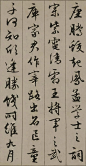 騰蛟起鳳孟學士之詞
宗紫電清霜王將軍之武
庫家君作宰路出名區童
子何知躬逢勝餞時維九月